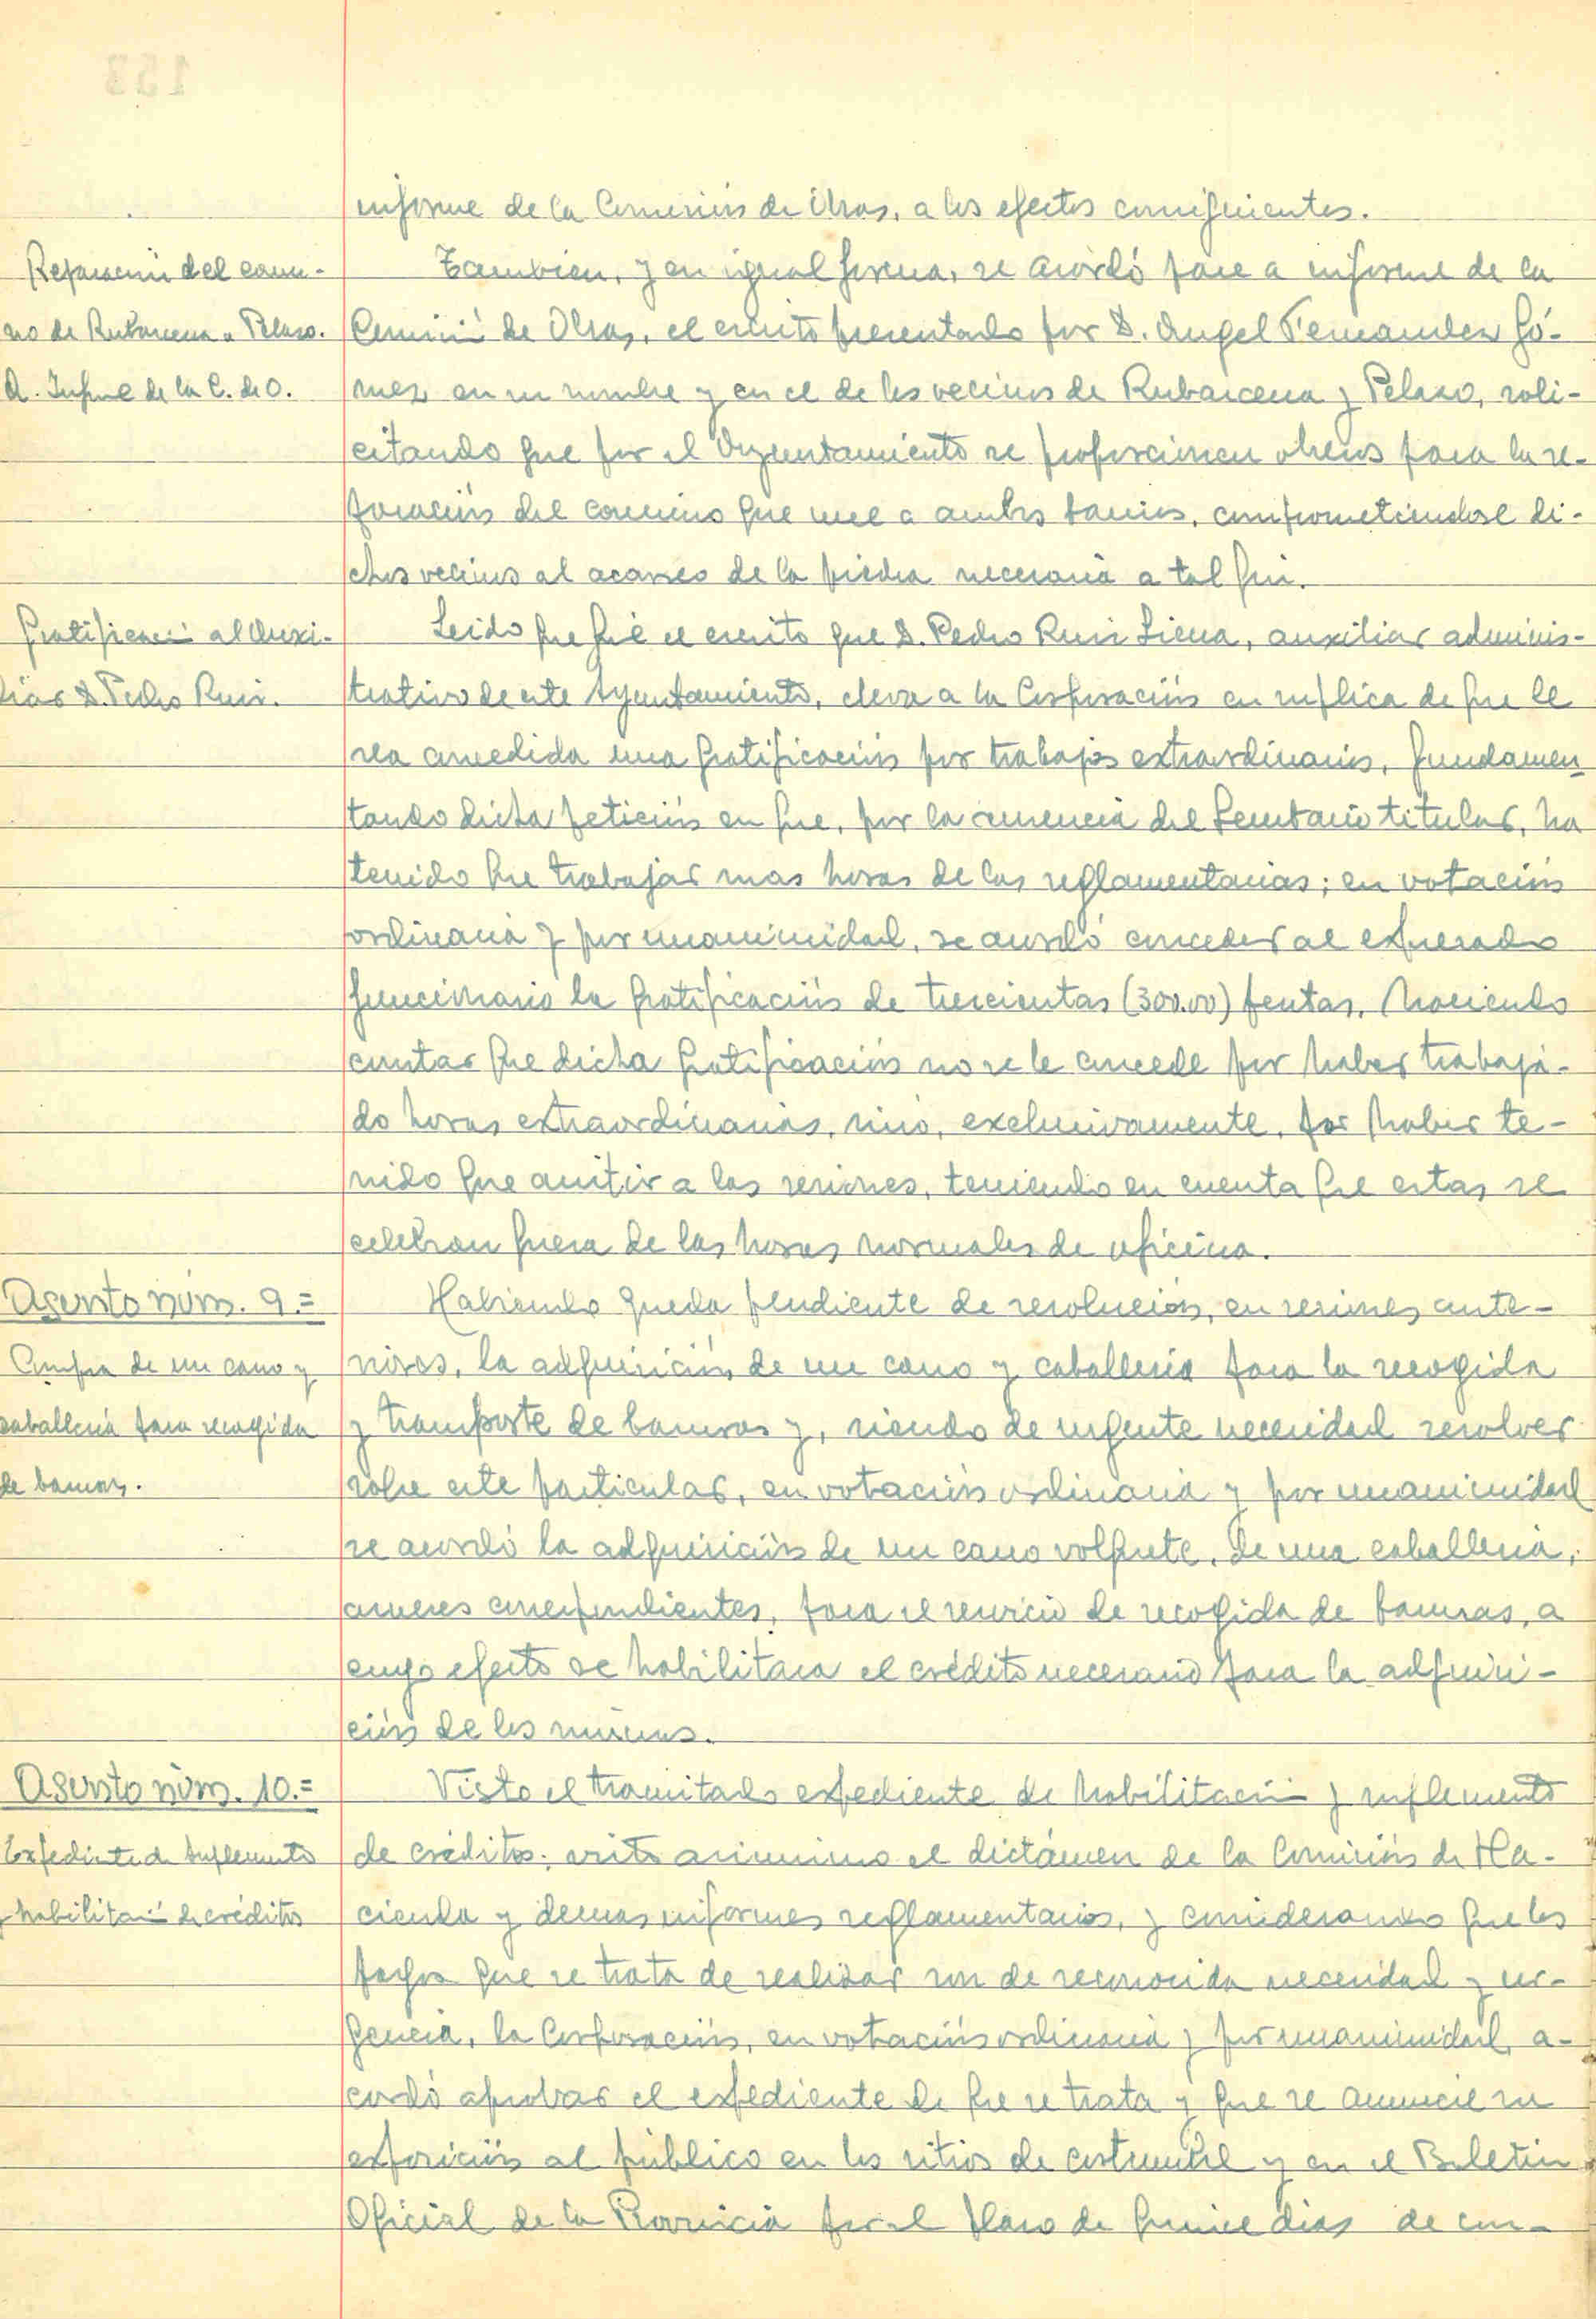 informe de la Comisión de Obras, a los efectos consiguientes.
Reparación del cami-
no de Rubarcena a Pelaso.
A. Informe de la C. de O.
Tambien, y en igual forma, se acordó pase a informe de la
Comisión de Obras, el escrito presentado por D. Angel Fernandez Gó-
mez en su nombre y en el de los vecinos de Rubarcena y Pelaso, soli-
citando que por el Ayuntamiento se proporcionen obreros para la re-
paración del camino que une a ambos barrios, comprometiendose di-
chos vecinos al acarreo de la piedra necesaria a tal fin.
Gratificación al Auxi-
liar D. Pedro Ruiz.
Leido que fué el escrito que D. Pedro Ruiz Liena, auxiliar adminis-
trativo de este Ayuntamiento, eleva a la Corporación en suplica de que le
sea concedida una gratificación por trabajos extraordinarios, fundamen
tando dicha petición en que, por la ausencia del Secretario titular, ha
tenido que trabajar mas horas de las reglamentarias; en votación
ordinaria y por unanimidad, se acordó conceder al expresado
funcionario la gratificación de trescientas (300.00) pesetas, haciendo
constar que dicha gratificación no se le concede por haber trabaja-
do horas extraordinarias, sino, exclusivamente, por haber te-
nido que asistir a las sesiones, teniendo en cuenta que estas se
celebran fuera de las horas normales de oficina.
Asunto núm. 9.=
Compra de un carro y
caballeria para recogida
de basuras.
Habiendo queda pendiente de resolución, en sesiones ante-
riores, la adquisición de un carro y caballeria para la recogida
y transporte de basuras y, siendo de urgente necesidad resolver
sobre este particular, en votación ordinaria y por unanimidad
se acordó la adquisición de un carro volquete, de una caballeria,
arneses correspondientes, para el servicio de recogida de basuras, a
cuyo efecto se habilitara el crédito necesario para la adquisi-
ción de los mismos.
Asunto núm. 10.=
Expediente de suplemento
y habilitación de créditos
Visto el tramitado expediente de habilitación y suplemento
de créditos; visto asimismo el dictámen de la Comisión de Ha-
cienda y demas informes reglamentarios, y considerando que los
pagos que se trata de realizar son de reconocida necesidad y ur-
gencia, la Corporación, en votación ordinaria y por unanimidad, a-
cordó aprobar el expediente de que se trata y que se anuncie su
exposición al público en los sitios de costumbre y en el Boletin
Oficial de la Provincia por el plazo de quince dias de con-